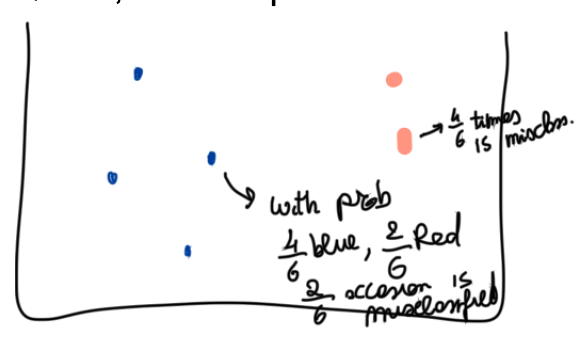 → 4/6 times
is misclass.
with prob
4/6 blue, 2/6 Red
2/6 occasion is
misclassified